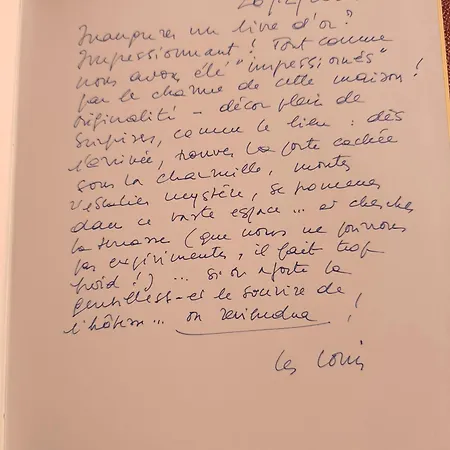 Inaugurer un livre d'or ?
Impressionnant ! Tout comme
nous avons été "impressionnés"
par le charme de cette maison !
Originalité - décor plein de
surprises, comme le lieu : dès
l'arrivée, trouver la porte cachée
sous la charmille, monter
l'escalier mystère, se promener
dans ce vaste espace ... et chercher
la terrasse (que nous ne pouvons
pas expérimenter, il fait trop
froid !) ... si on ajoute la
gentillesse et le sourire de
l'hôtesse ... on reviendra !
Les